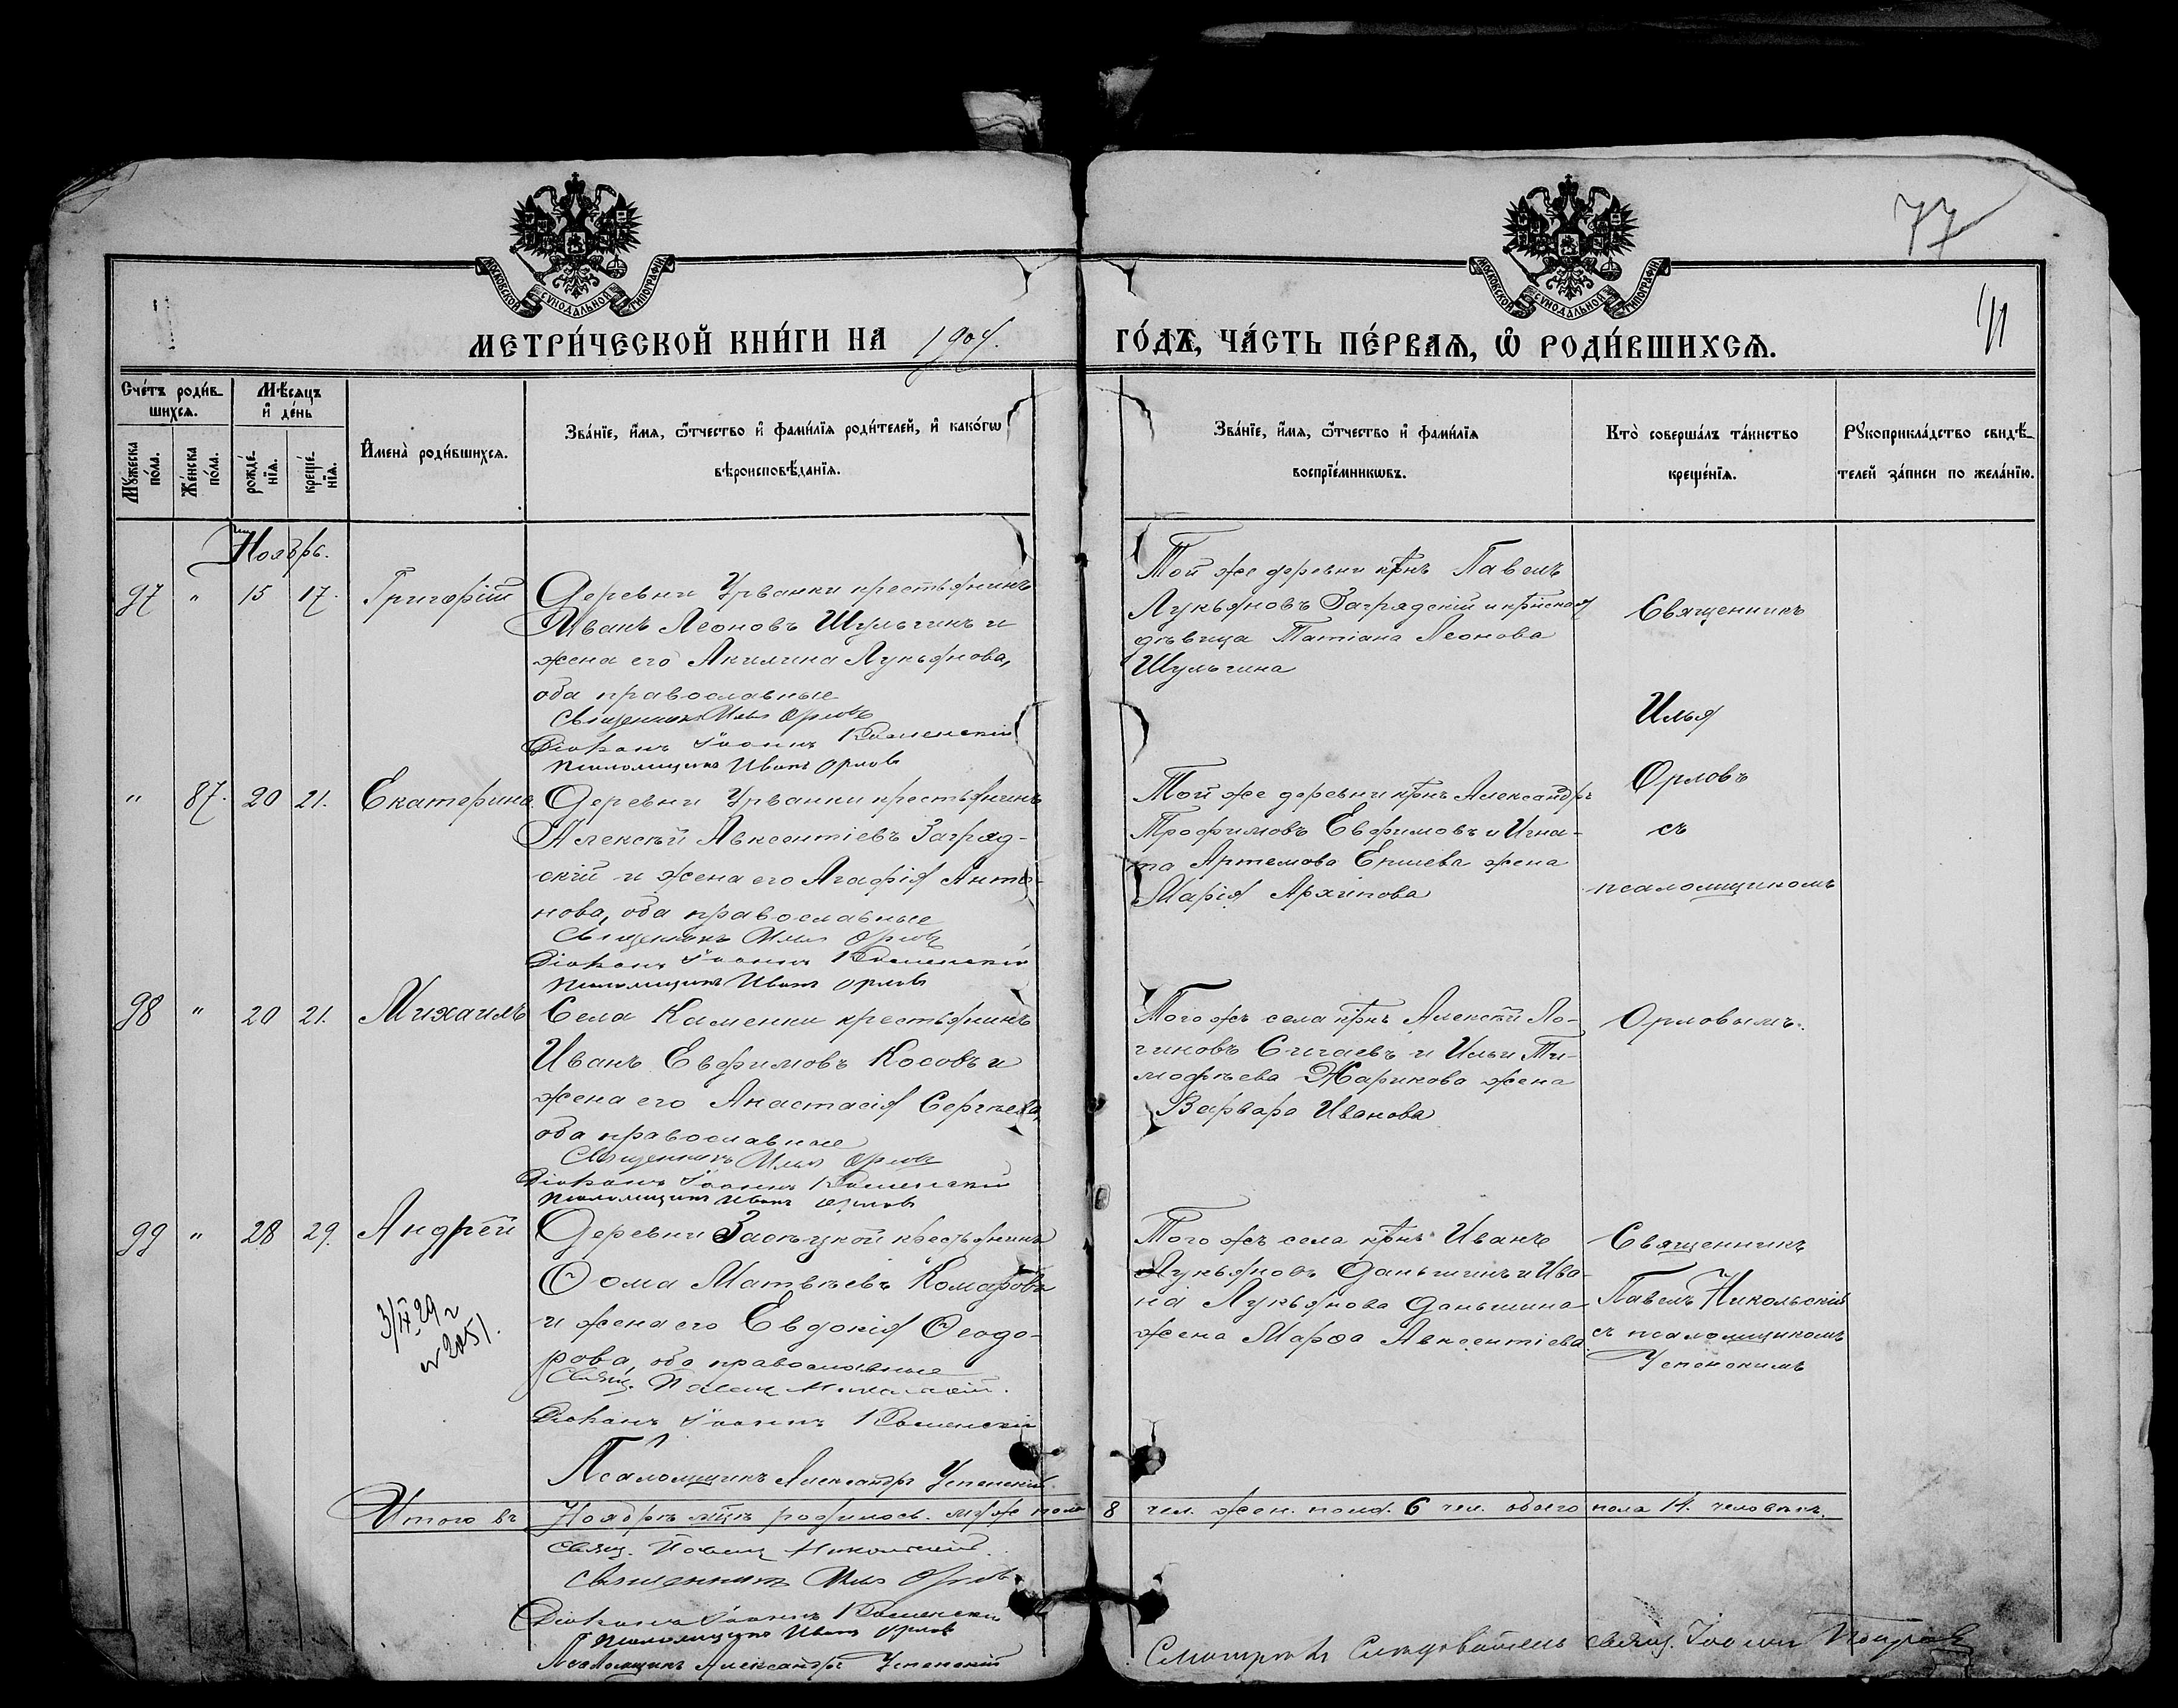 77
МОСКОВСКОЙ СѴНОДАЛЬНОЙ ТИПОГРАФІИ
МОСКОВСКОЙ СѴНОДАЛЬНОЙ ТИПОГРАФІИ
МЕТРИ́ЧЕСКОЙ КНИ́ГИ НА 190
ГО́ДЪ, ЧА́СТЬ ПЕ́РВАѦ, Ѡ РОДИ́ВШИХСѦ.
Сче́тъ роди́вшихсѧ.
Мѣ́сѧцъ и҆ де́нь
Мꙋ́жеска по́ла.
Же́нска по́ла.
рожде́нїѧ.
креще́нїѧ.
И҆мена̀ роди́вшихсѧ.
Зва́нїе, и҆́мѧ, ѻ҆́тчество и҆ фами́лїѧ роди́телей, и҆ како́гѡ
вѣроисповѣ́данїѧ.
Зва́нїе, и҆́мѧ, ѻ҆́тчество и҆ фами́лїѧ
воспрїе́мникѡвъ.
Кто̀ соверша́лъ та́инство
креще́нїѧ.
Рꙋкоприкла́дство свидѣ́
телей за́писи по жела́нїю.
Ноябрь.
97 " 15 17. Григорій
Деревни Урванки крестьянинъ
Иванъ Леоновъ Шульгинъ и
жена его Акилина Лукьянова,
оба православные
Священникъ Илья Орловъ
Діаконъ Іоаннъ Каменскій
Псаломщикъ Иванъ Орловъ
Той же деревни крнъ Павелъ
Лукьяновъ Загрядскій и крнская
дѣвица Татіана Леонова
Шульгина
Священникъ
Илья
Орловъ
съ
псаломщикомъ
Орловымъ.
" 87. 20 21. Екатерина
Деревни Урванки крестьянинъ
Алексѣй Авксентіевъ Загряд-
скій и жена его Агафія Анто-
нова, оба православные
Священникъ Илья Орловъ
Діаконъ Іоаннъ Каменскій
Псаломщикъ Иванъ Орловъ
Той же деревни крнъ Александръ
Трофимовъ Евфимовъ и Игна-
та Артемова Ершева жена
Марія Архипова
98 " 20 21. Михаилъ
Села Каменки крестьянинъ
Иванъ Евфимовъ Косовъ и
жена его Анастасія Сергѣева,
оба православные
Священникъ Илья Орловъ
Діаконъ Іоаннъ Каменскій
Псаломщикъ Иванъ Орловъ
Того жъ села крнъ Алексѣй Ло-
гиновъ Сигаевъ и Ильи Ти-
мофѣева Жарикова жена
Варвара Иванова
99 " 28 29. Андрей
3/IV 29 г
№ 2051.
Деревни Засѣцкой крестьянинъ
Ѳома Матвѣевъ Комаровъ
и жена его Евдокія Ѳеодо-
рова, оба православные
Свящ. Павелъ Никольскій.
Діаконъ Іоаннъ Каменскій
Псаломщикъ Александръ Успенскій
Того жъ села крнъ Иванъ
Лукьяновъ Даньшинъ и Ива-
на Лукьянова Даньшина
жена Марѳа Авксентіева
Священникъ
Павелъ Никольскій
съ псаломщикомъ
Успенскимъ
Итого въ Ноябрѣ мцѣ родилось. муж пола 8 чел. жен. пола. 6 чел. обоего пола 14. человѣкъ.
Свящ. Павелъ Никольскій.
Священникъ Илья Орловъ
Діаконъ Іоаннъ Каменскій
Псаломщикъ Иванъ Орловъ
Псаломщикъ Александръ Успенскій
Смотрѣлъ Слѣдователь свящ. Іоаннъ